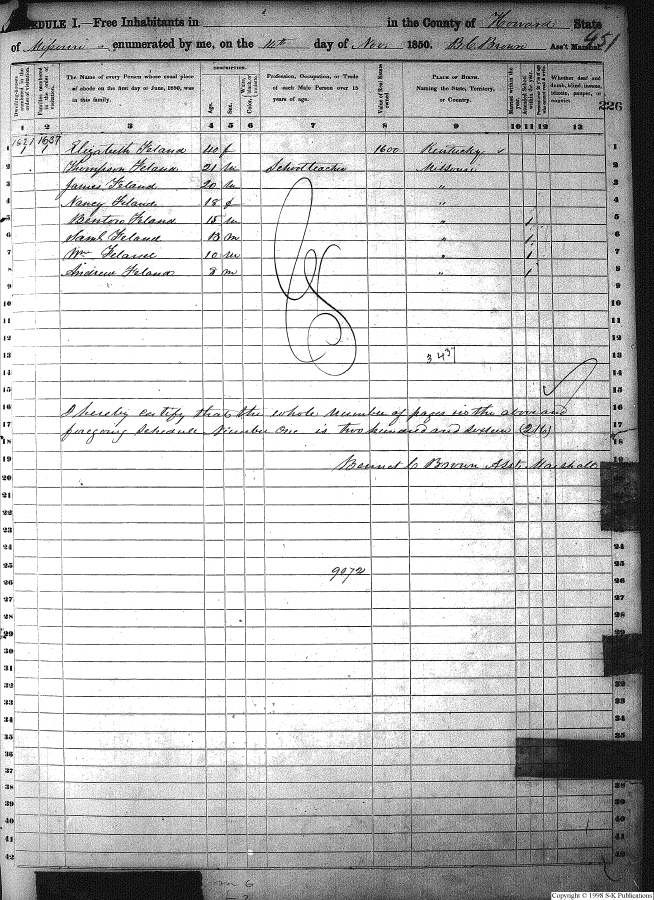 SCHEDULE I.—Free Inhabitants in in the County of Howard State
of Missouri enumerated by me, on the 14th day of Nov 1850. B. C. Brown Ass't Marshal.
451
226
DESCRIPTION.
Dwelling-houses numbered in the order of visitation.
Families numbered in the order of visitation.
The Name of every Person whose usual place of abode on the first day of June, 1850, was in this family.
Age.
Sex.
White, black, or mulatto.
Color,
Profession, Occupation, or Trade of each Male Person over 15 years of age.
Value of Real Estate owned
PLACE OF BIRTH.
Naming the State, Territory, or Country.
Married within the year.
Attended School within the year.
Whether deaf and dumb, blind, insane, idiotic, pauper, or convict.
1 2 3 4 5 6 7 8 9 10 11 12 13
1 1637 Elizabeth Feland 40 f 1600 Kentucky 1
2 Thompson Feland 21 m School teacher Missouri 2
3 James Feland 20 m " 3
4 Nancy Feland 18 f " 4
5 Benton Feland 15 m " 1 5
6 Saml Feland 13 m " 1 6
7 Wm Feland 10 m " 1 7
8 Andrew Feland 8 m " 1 8
9 9
10 10
11 11
12 12
13 3437 13
14 14
15 15
16 I hereby certify that the whole number of pages in the above and 16
17 foregoing Schedule Number One is two hundred and sixteen (216) 17
18 18
19 Bennet C Brown Asst. Marshall 19
20
21
22
23
24 24
25 9072 25
26 26
27 27
28 28
29 29
30 30
31
32 32
33 33
34 34
35 35
36
37
38
39 39
40 40
41 41
42 42
Copyright © 1998 S-K Publications